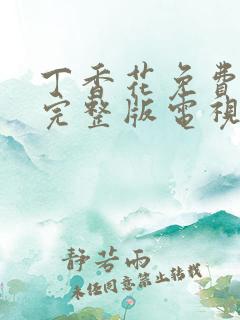 丁香花免費
完整版電視
靜若雨
未经同意禁止转载